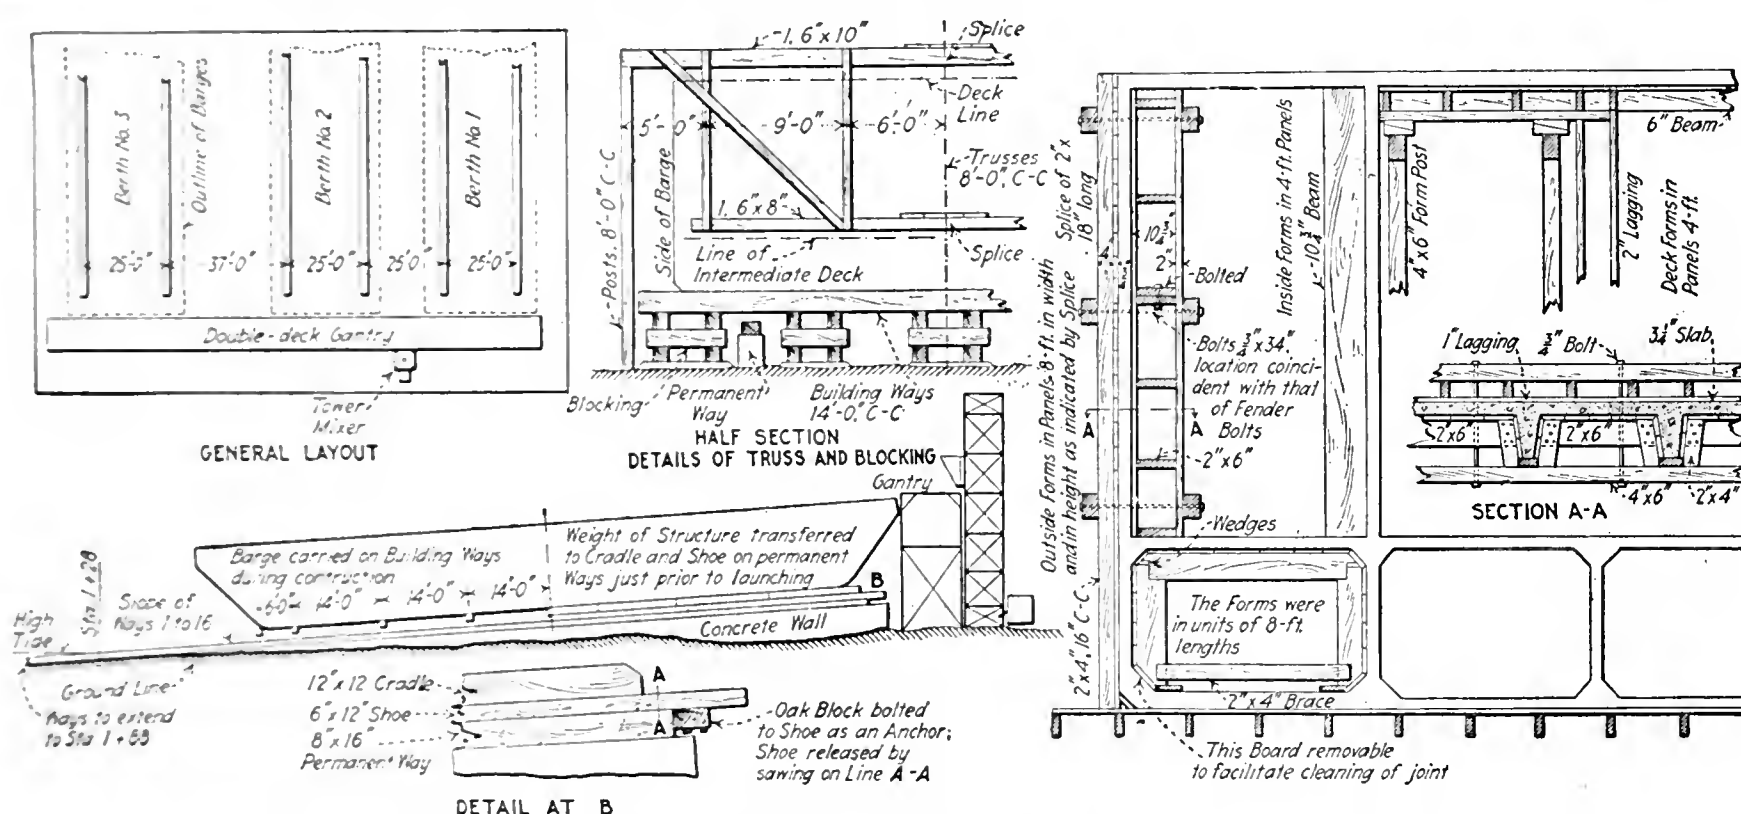 Berth No. 3
Outline of Barges
Berth No. 2
Berth No. 1
25'-0"
37'-0"
25'-0"
25'-0"
25'-0"
Double-deck Gantry
Tower
Mixer
GENERAL LAYOUT
1, 6"x10"
Splice
Deck
Line
5'-0"
9'-0"
6'-0"
Posts, 8'-0" C-C
Side of Barge
Trusses
8'-0", C-C
1, 6"x8"
Line of
Intermediate Deck
Splice
Blocking
Permanent
Way
Building Ways
14'-0," C-C
HALF SECTION
DETAILS OF TRUSS AND BLOCKING
Gantry
Barge carried on Building Ways
during contruction
Weight of Structure transferred
to Cradle and Shoe on permanent
Ways just prior to launching
6'-0"
14'-0"
14'-0"
14'-0"
B
Concrete Wall
High
Tide
Sta 1+28
Slope of
Ways 1 to 16
Ground Line
Ways to extend
to Sta 1+68
12"x12 Cradle
6"x12" Shoe
8"x16"
Permanent Way
A
A
Oak Block bolted
to Shoe as an Anchor;
Shoe released by
sawing on Line A-A
DETAIL AT B
Outside Forms in Panels 8-ft. in width
and in height as indicated by Splice
Splice of 2"x
18" long
2"x4", 16" C-C
4"
10 3/4"
2"
Bolted
Bolts 3/4"x34",
location coinci-
dent with that
of Fender
Bolts
A
A
2"x6"
Inside Forms in 4-ft. Panels
10 3/4" Beam
Wedges
The Forms were
in units of 8-ft.
lengths
2"x4" Brace
This Board removable
to facilitate cleaning of joint
6" Beam
4"x6" Form Post
2" Lagging
Deck Forms in
Panels 4-ft.
1" Lagging
3/4" Bolt
3 1/4" Slab
2"x6"
2"x6"
4"x6"
2"x4"
SECTION A-A